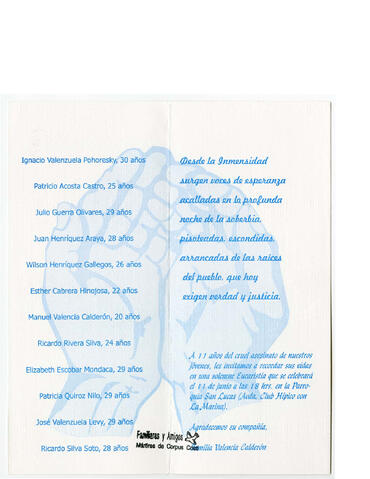 Ignacio Valenzuela Pohoresky, 30 años
Patricio Acosta Castro, 25 años
Julio Guerra Olivares, 29 años
Juan Henríquez Araya, 28 años
Wilson Henríquez Gallegos, 26 años
Esther Cabrera Hinojosa, 22 años
Manuel Valencia Calderón, 20 años
Ricardo Rivera Silva, 24 años
Elizabeth Escobar Mondaca, 29 años
Patricia Quiroz Nilo, 29 años
José Valenzuela Levy, 29 años
Ricardo Silva Soto, 28 años
Desde la Inmensidad
surgen voces de esperanza
acalladas en la profunda
noche de la soberbia,
pisoteadas, escondidas,
arrancadas de las raíces
del pueblo, que hoy
exigen verdad y justicia.
A 11 años del cruel asesinato de nuestros
jóvenes, les invitamos a recordar sus vidas
en una solemne Eucaristía que se celebrará
el 11 de junio a las 18 hrs. en la Parro-
quia San Lucas (Avda. Club Hípico con
La Marina).
Agradecemos su compañía,
Familia Valencia Calderón
Familiares y Amigos
Mártires de Corpus